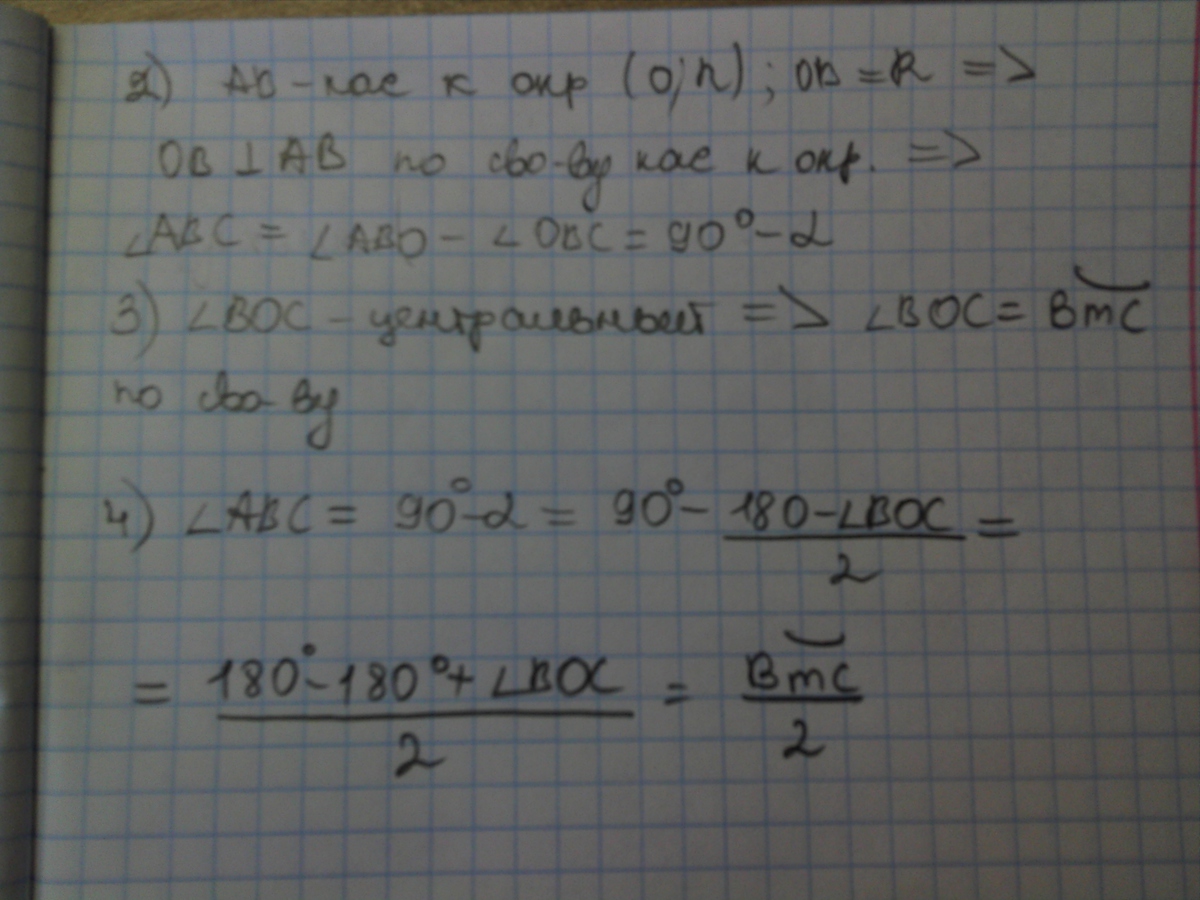 2) AB - кас к окр (O; R); OB = R =>
OB ⊥ AB по сво-ву кас к окр. =>
∠ABC = ∠ABO - ∠OBC = 90° - α
3) ∠BOC - центральный => ∠BOC = BmC
по сво-ву
4) ∠ABC = 90° - α = 90° - (180 - ∠BOC)/2 =
= (180° - 180° + ∠BOC)/2 = BmC/2